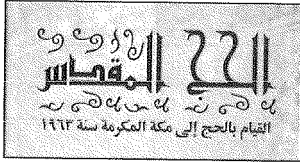 الحج المقدس
القيام بالحج إلى مكة المكرمة سنة ١٩٦٣